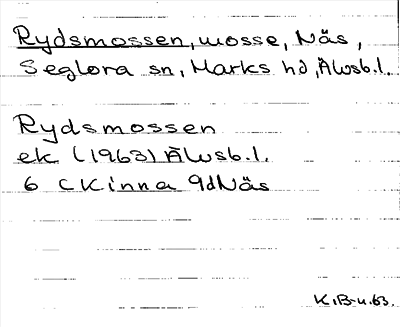 Rydsmossen, mosse, Näs,
Seglora sn, Marks hd, Älvsb.l.
Rydsmossen
ek (1963) Älvsb.l.
6 C Kinna 9d Näs
K.B-n.63.